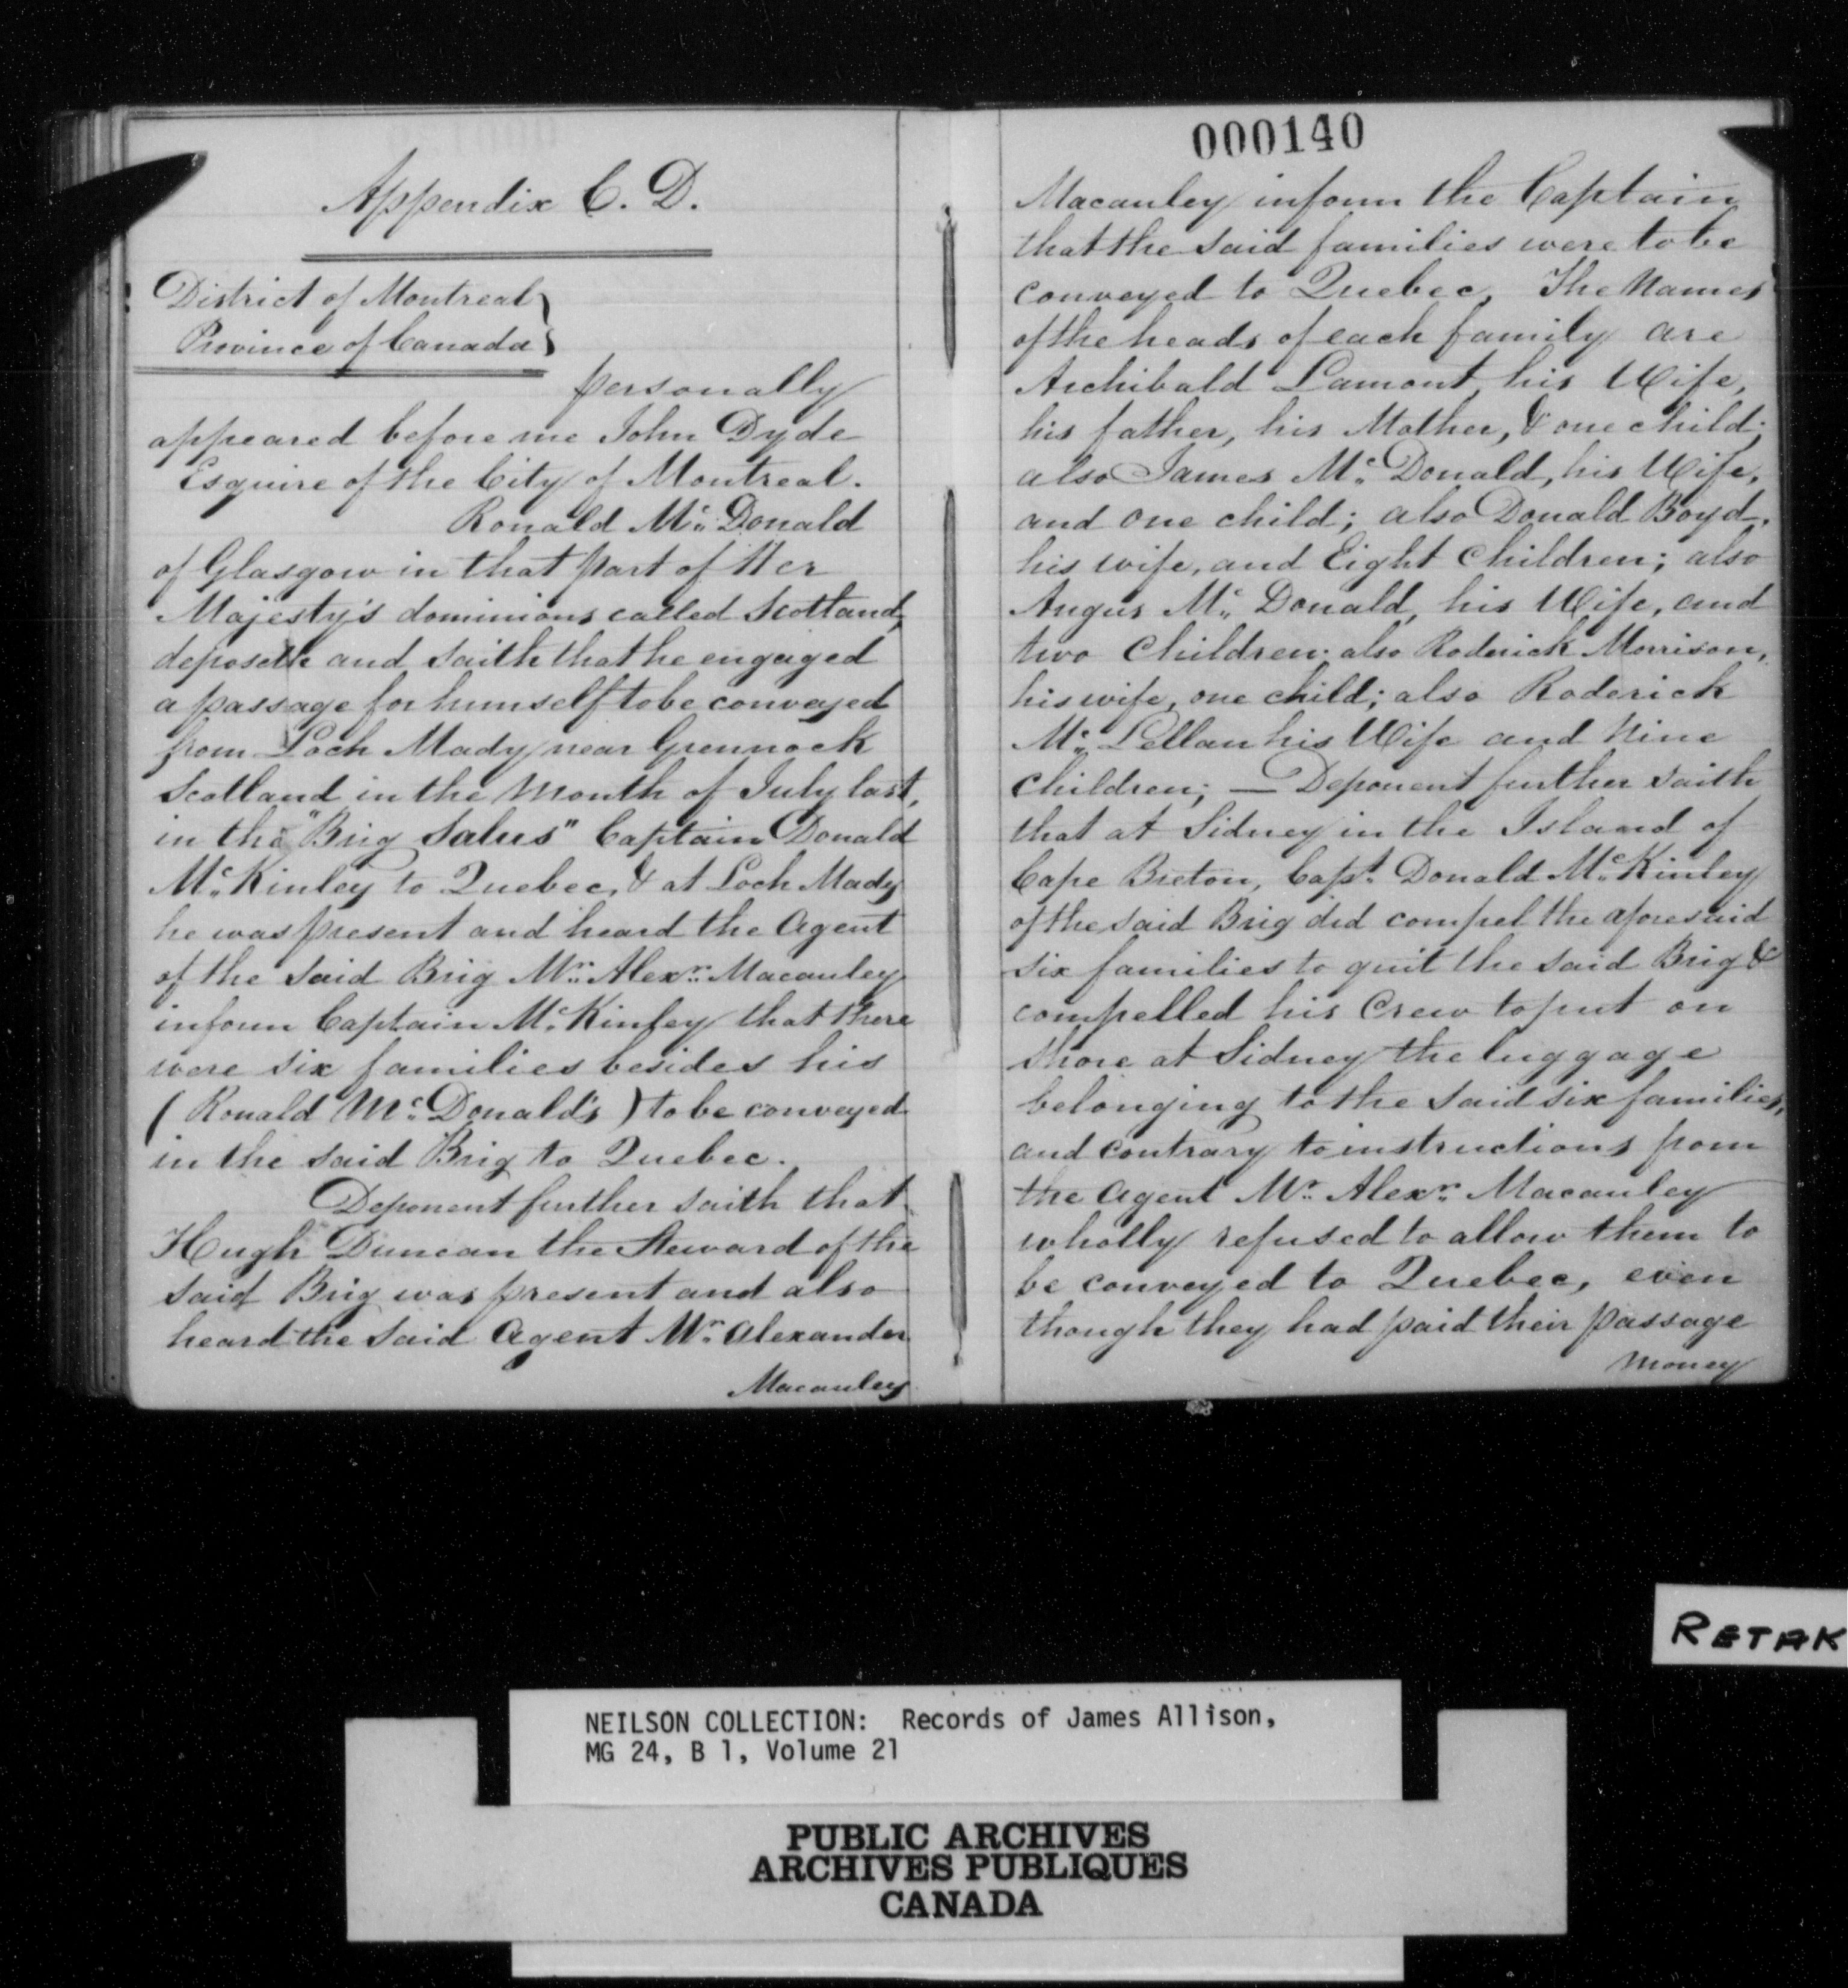 Appendix C. D.
District of Montreal }
Province of Canada }
personally
appeared before me John Dyde
Esquire of the City of Montreal.
Ronald Mc. Donald
of Glasgow in that part of Her
Majesty's dominions called Scotland,
deposeth and saith that he engaged
a passage for humself to be conveyed
from Loch Mady near Grennock
Scotland in the Month of July last,
in the "Brig Salus" Captain Donald
Mc. Kinley to Quebec, & at Loch Mady
he was present and heard the Agent
of the said Brig Mr. Alexr. Macauley
inform Captain Mc. Kinley that there
were six families besides his
(Ronald Mc. Donald's) to be conveyed
in the said Brig to Quebec.
Deponent further saith that
Hugh Duncan the Steward of the
said Brig was present and also
heard the said Agent Mr. Alexander
Macauley
000140
Macauley inform the Captain
that the said families were to be
conveyed to Quebec, The Names
of the heads of each family are
Archibald Lamont, his Wife,
his father, his Mother, & one child;
also James Mc. Donald, his Wife,
and one child; also Donald Boyd,
his wife, and Eight Children; also
Angus Mc. Donald, his Wife, and
two Children. also Roderick Morrison,
his wife, one child; also Roderick
Mc. Lellan his Wife and Nine
Children; — Deponent further saith
that at Sidney in the Island of
Cape Breton, Capt. Donald Mc. Kinley
of the said Brig did compel the aforesaid
six families to quit the said Brig &
compelled his Crew to put on
shore at Sidney the luggage
belonging to the said six families,
and contrary to instructions from
the Agent Mr. Alexr. Macauley
wholly refused to allow them to
be conveyed to Quebec, even
though they had paid their passage
money
RETAK
NEILSON COLLECTION: Records of James Allison,
MG 24, B 1, Volume 21
PUBLIC ARCHIVES
ARCHIVES PUBLIQUES
CANADA